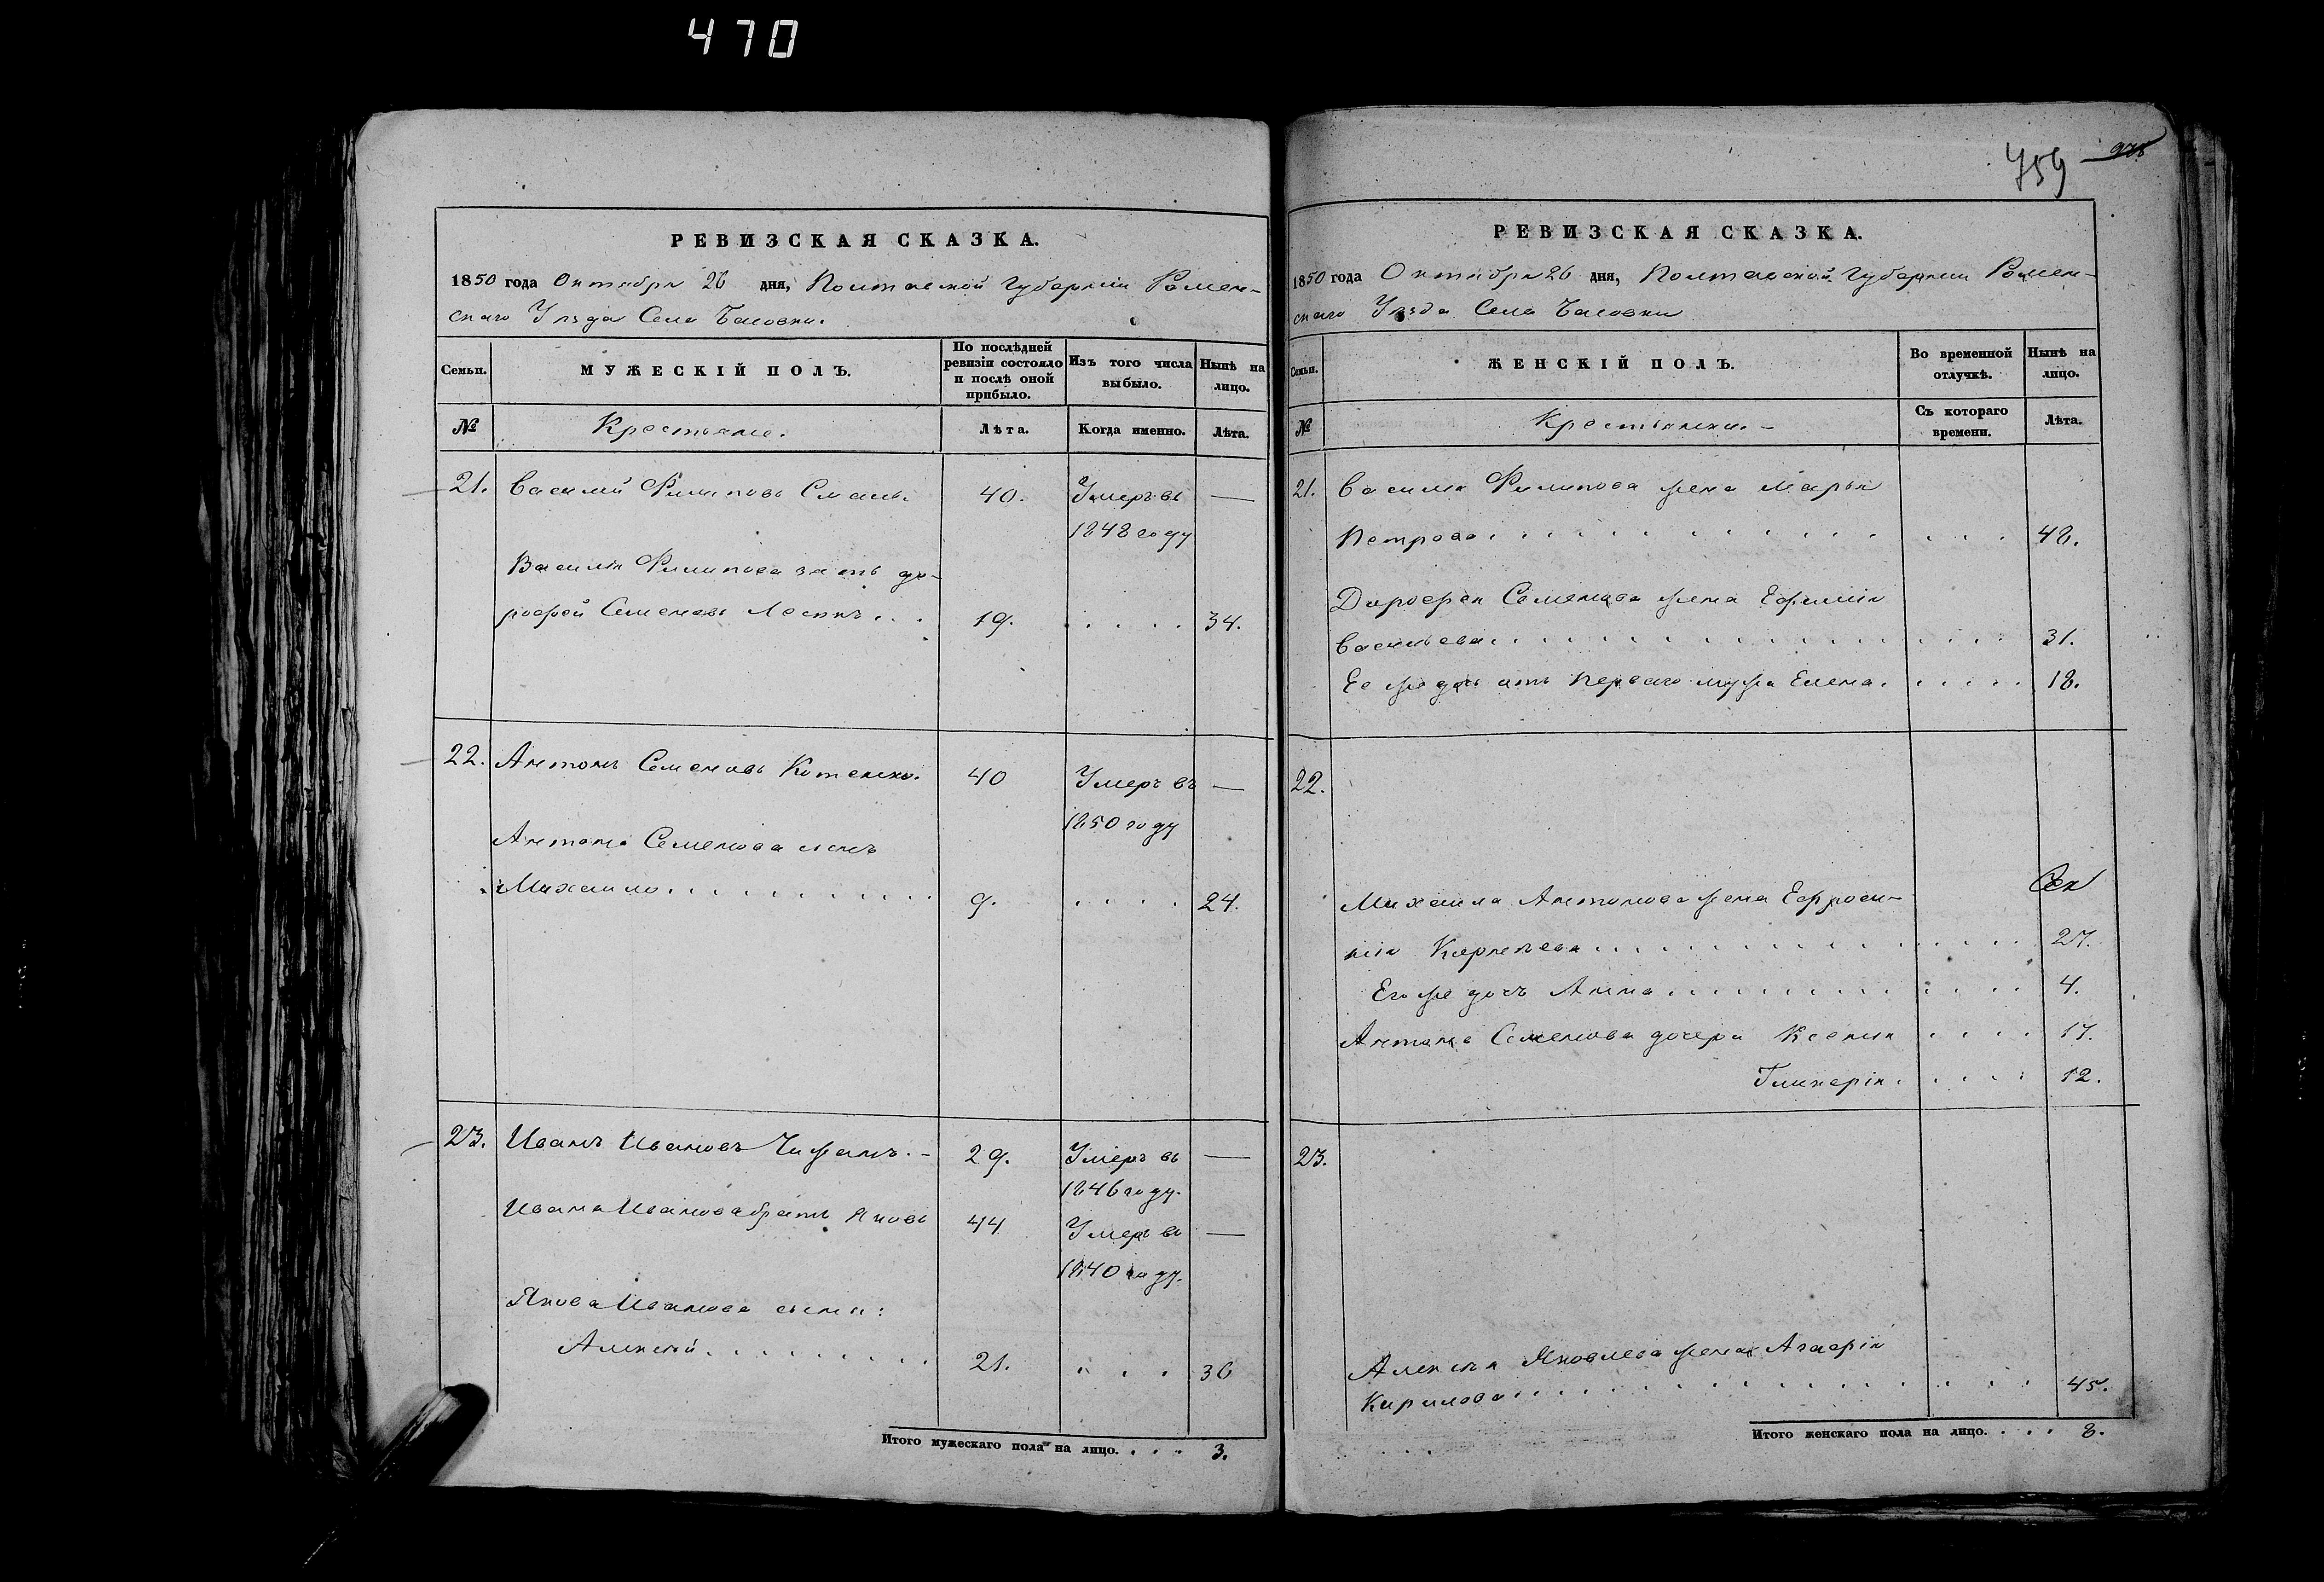 470
РЕВИЗСКАЯ СКАЗКА.
1850 года Октября 26 дня, Полтавской Губерніи Ромен-
скаго Уѣзда Села Басовки.
Семьи.
МУЖЕСКІЙ ПОЛЪ.
По послѣдней ревизіи состояло и послѣ оной прибыло.
Изъ того числа выбыло.
Нынѣ на лицо.
№
Крестьяне.
Лѣта.
Когда именно.
Лѣта.
21. Василий Филиповъ 40. Умеръ въ —
1848 году
Василія Филипова зять до-
рофей Семеновъ 19. . . . . . 34.
22. Антонъ Семеновъ Котенко. 40 Умеръ въ —
1850 году
Антона Семенова сынъ
Михаило . . . . . . . . . . 9. . . . . 24.
23. Иванъ Ивановъ Чижанъ. - 29. Умеръ въ —
1846 году.
Ивана Иванова братъ Яковъ 44 Умеръ въ —
1840 году.
Якова Иванова сыны:
Алексѣй . . . . . . . . . 21. . . . 36
Итого мужескаго пола на лицо. . . . 3.
759
РЕВИЗСКАЯ СКАЗКА.
1850 года Октября 26 дня, Полтавской Губерніи Ромен-
скаго Уѣзда Села Басовки
Семьи.
ЖЕНСКІЙ ПОЛЪ.
Во временной отлучкѣ.
Нынѣ на лицо.
№
Крестьянки. -
Съ котораго времени.
Лѣта.
21. Василія Филипова жена Марья
Петрова . . . . . . . . . . . . . 48.
Дорофея Семенова жена Ефимія
Васильева . . . . . . . . . . . . . 31.
Ее же дочь отъ перваго мужа Елена . . . . . . 18.
22.
Михаила Антонова жена Ефроси-
нія Карпѣева . . . . . . . . . . . . . 27.
Его же дочь Анна . . . . . . . . . . . . . 4.
Антона Семенова дочери Ксенія . . . . 17.
Гликерія . . . . . . 12.
23.
Алексѣя Яковлева жена Агафія
Кирилова . . . . . . . . . . . . . 45.
Итого женскаго пола на лицо. . . . 8.